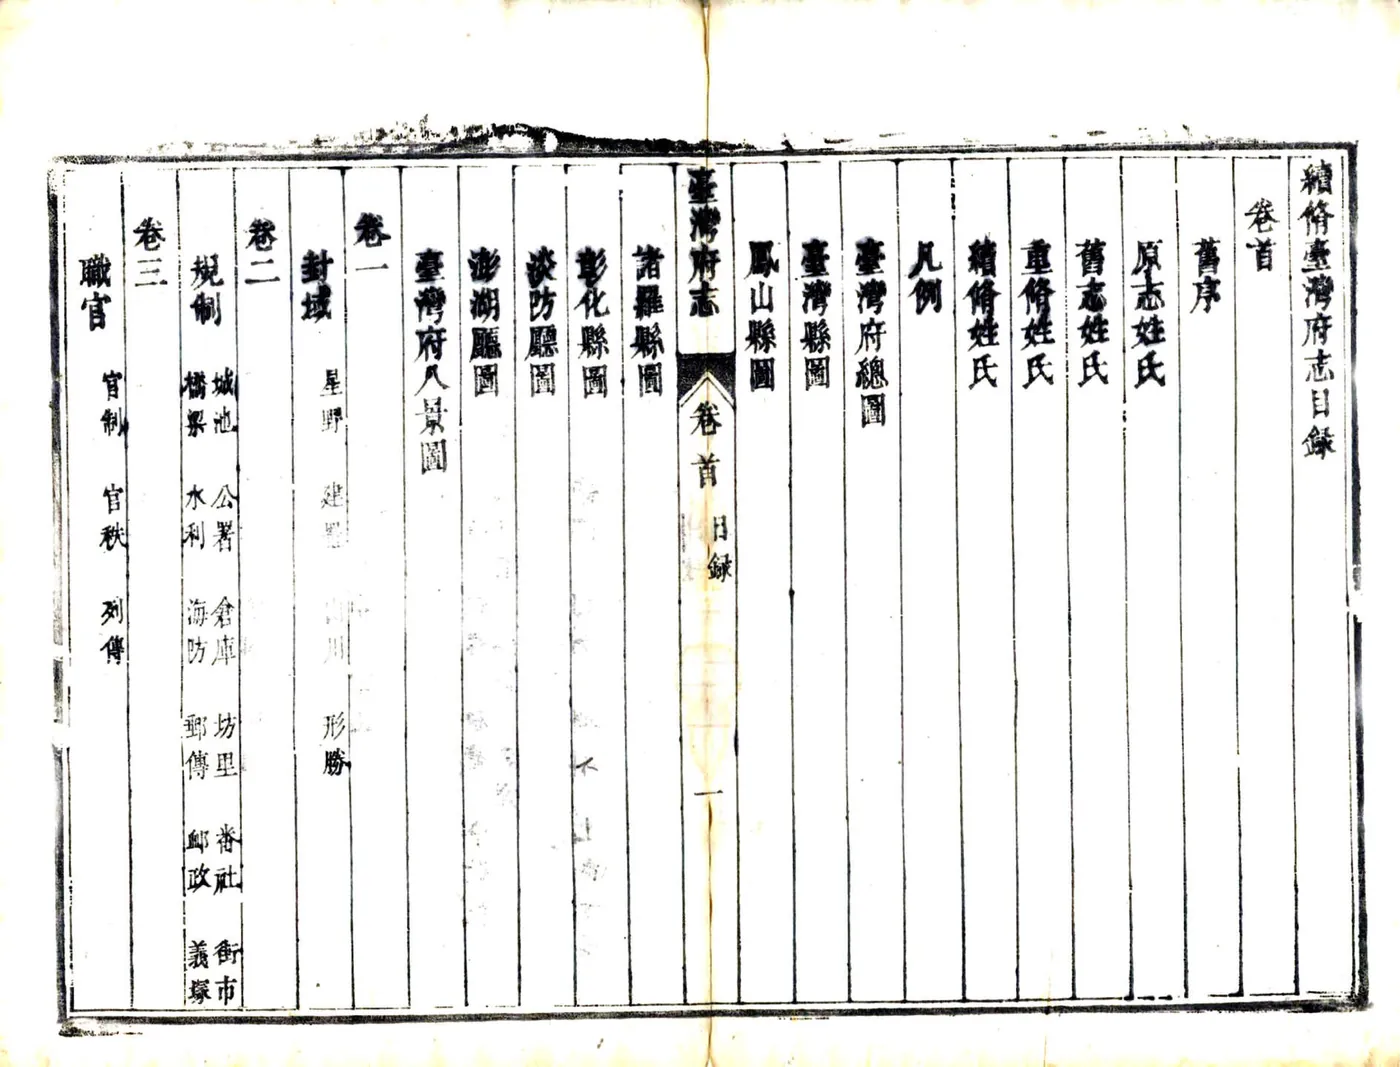 續脩臺灣府志目録
卷首
舊序
原志姓氏
舊志姓氏
重脩姓氏
續脩姓氏
凡例
臺灣府總圖
臺灣縣圖
鳳山縣圖
臺灣府志 卷首 目録 一
諸羅縣圖
彰化縣圖
淡防廳圖
澎湖廳圖
臺灣府八景圖
卷一
封域 星野 建置 山川 形勝
卷二
規制 城池 公署 倉庫 坊里 番社 街市
橋梁 水利 海防 郵傳 䘏政 義塚
卷三
職官 官制 官秩 列傳